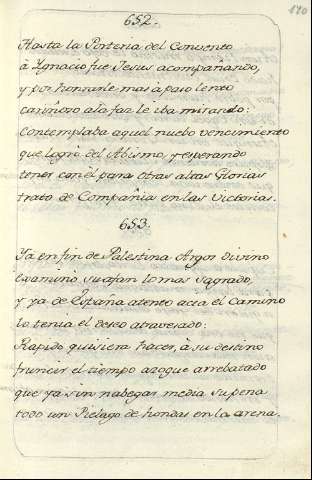 652.
120
Hasta la Porteria del Convento
à Ygnacio fue Jesus acompañando,
y por honrarle mas à paso lento
cariñoso a la faz le iba mirando:
Contemplaba aquel nuebo vencimiento
que logrò del Abismo, y esperando
tener con èl para otras altas Glorias
trato de Compañia en las Victorias.
653.
Ya en fin de Palestina Argos divino
examinò su afan lo mas sagrado,
y ya de España atento acia el camino
lo tenia el deseo atravesado:
Rapido quisiera hacer, à su destino
fruncir el tiempo azogue arrebatado
que ya sin nabegar media su pena
todo un Pielago de hondas en la arena.